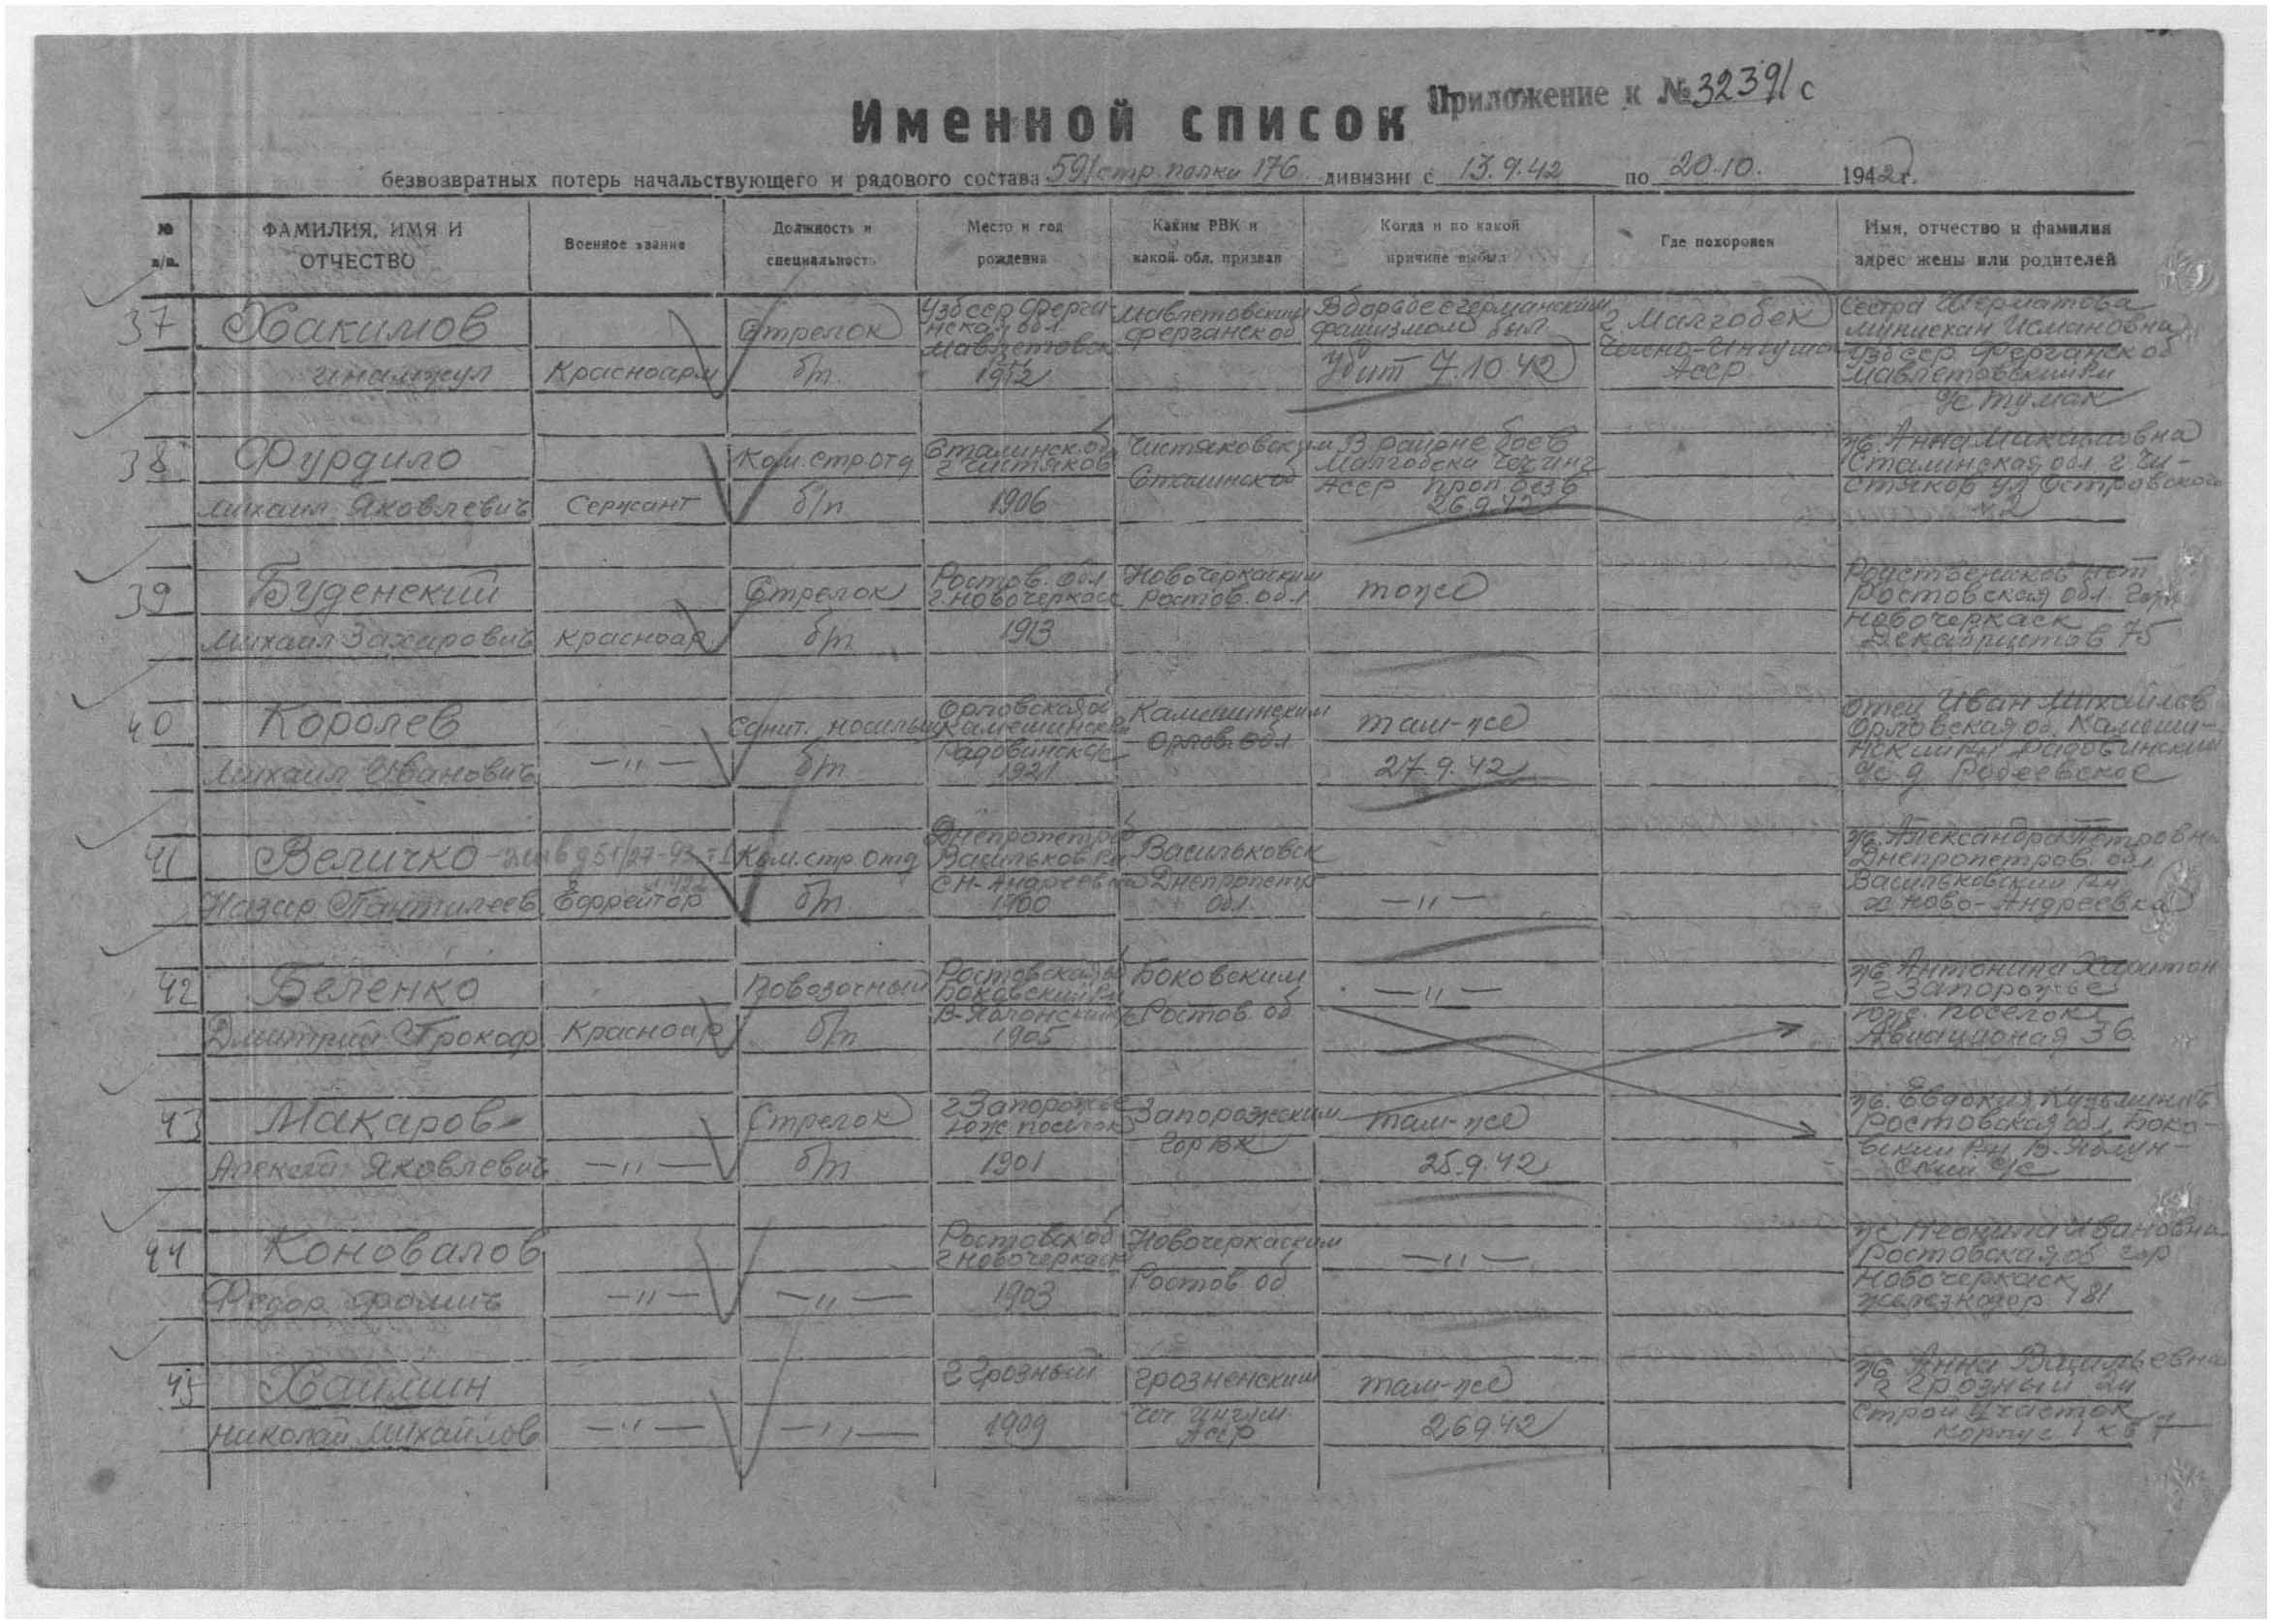 Приложение к № 32391 с
Именной список
безвозвратных потерь начальствующего и рядового состава 591 стр. полка 176 дивизии с 13.9.42 по 20.10. 1942 г.
№ п/п. ФАМИЛИЯ, ИМЯ И ОТЧЕСТВО Военное звание Должность и специальность Место и год рождения Каким РВК и какой обл. призван Когда и по какой причине выбыл Где похоронен Имя, отчество и фамилия адрес жены или родителей
37 Хакимов Стрелок Узбсср Ферга- Мавлетовским В борьбе с германским г. Малгобек Сестра
нская обл. Ферганской фашизмом был Исмановна
Красноарм б/п 1912 Убит 7.10 42 АССР Узбсср Ферганской
38 Фурдило Ком. стр отд Сталинск. об Чистяковским В районе боев ж. Анна Максимовна
г Чистяков Сталинской Малгобека Чеч инг Сталинская обл. г. Чи-
Михаил Яковлевич Сержант б/п 1906 АССР проп безв стяков ул Островского
26.9.42 2
39 Буденский Стрелок Ростов. обл Новочеркаским тоже Родственников нет
г. Новочеркасс Ростов. обл Ростовская обл. гор
Михаил Захарович Красноар б/п 1913 Новочеркаск
Декабристов 75
40 Королев Санит. носильщ Орловская об Камешинским там-же отец Иван Михайлов
Орлов. обл Орловская об. Камеши-
Михаил Иванович —"— б/п 1921 27.9.42
41 Величко Ком. стр отд Днепропетр об Васильковск ж. Александра Петровна
Васильков. рн Днепропетр Днепропетров. обл
Назар Пантилеев Ефрейтор б/п 1900 обл. —"— Васильковский рн
х Ново-Андреевка
42 Беленко Повозочный Ростовская об Боковским —"— ж. Антонина Харитон
Боковский рн Ростов. об г Запорожье
Дмитрий Прокоф Красноар б/п 1905 юж. поселок
Авиационая 36
43 Макаров Стрелок г Запорожье Запорожским там-же ж. Евдокия Кузьминич
юж поселок гор вк Ростовская обл, Боко-
Алексей Яковлевич —"— б/п 1901 25.9.42 вский р-н
44 Коновалов Ростовск об Новочеркаским —"— Ивановна
г Новочеркаск Ростовская об гор
Федор Фомич —"— —"— 1903 Ростов. об Новочеркаск
железнодор 181
45 Хаймин г Грозный Грозненским там-же ж. Анна Васильевна
г Грозный 2й
Николай Михайлов —"— —"— 1909 АССР 26942 строй участок
корпус 1 кв 7